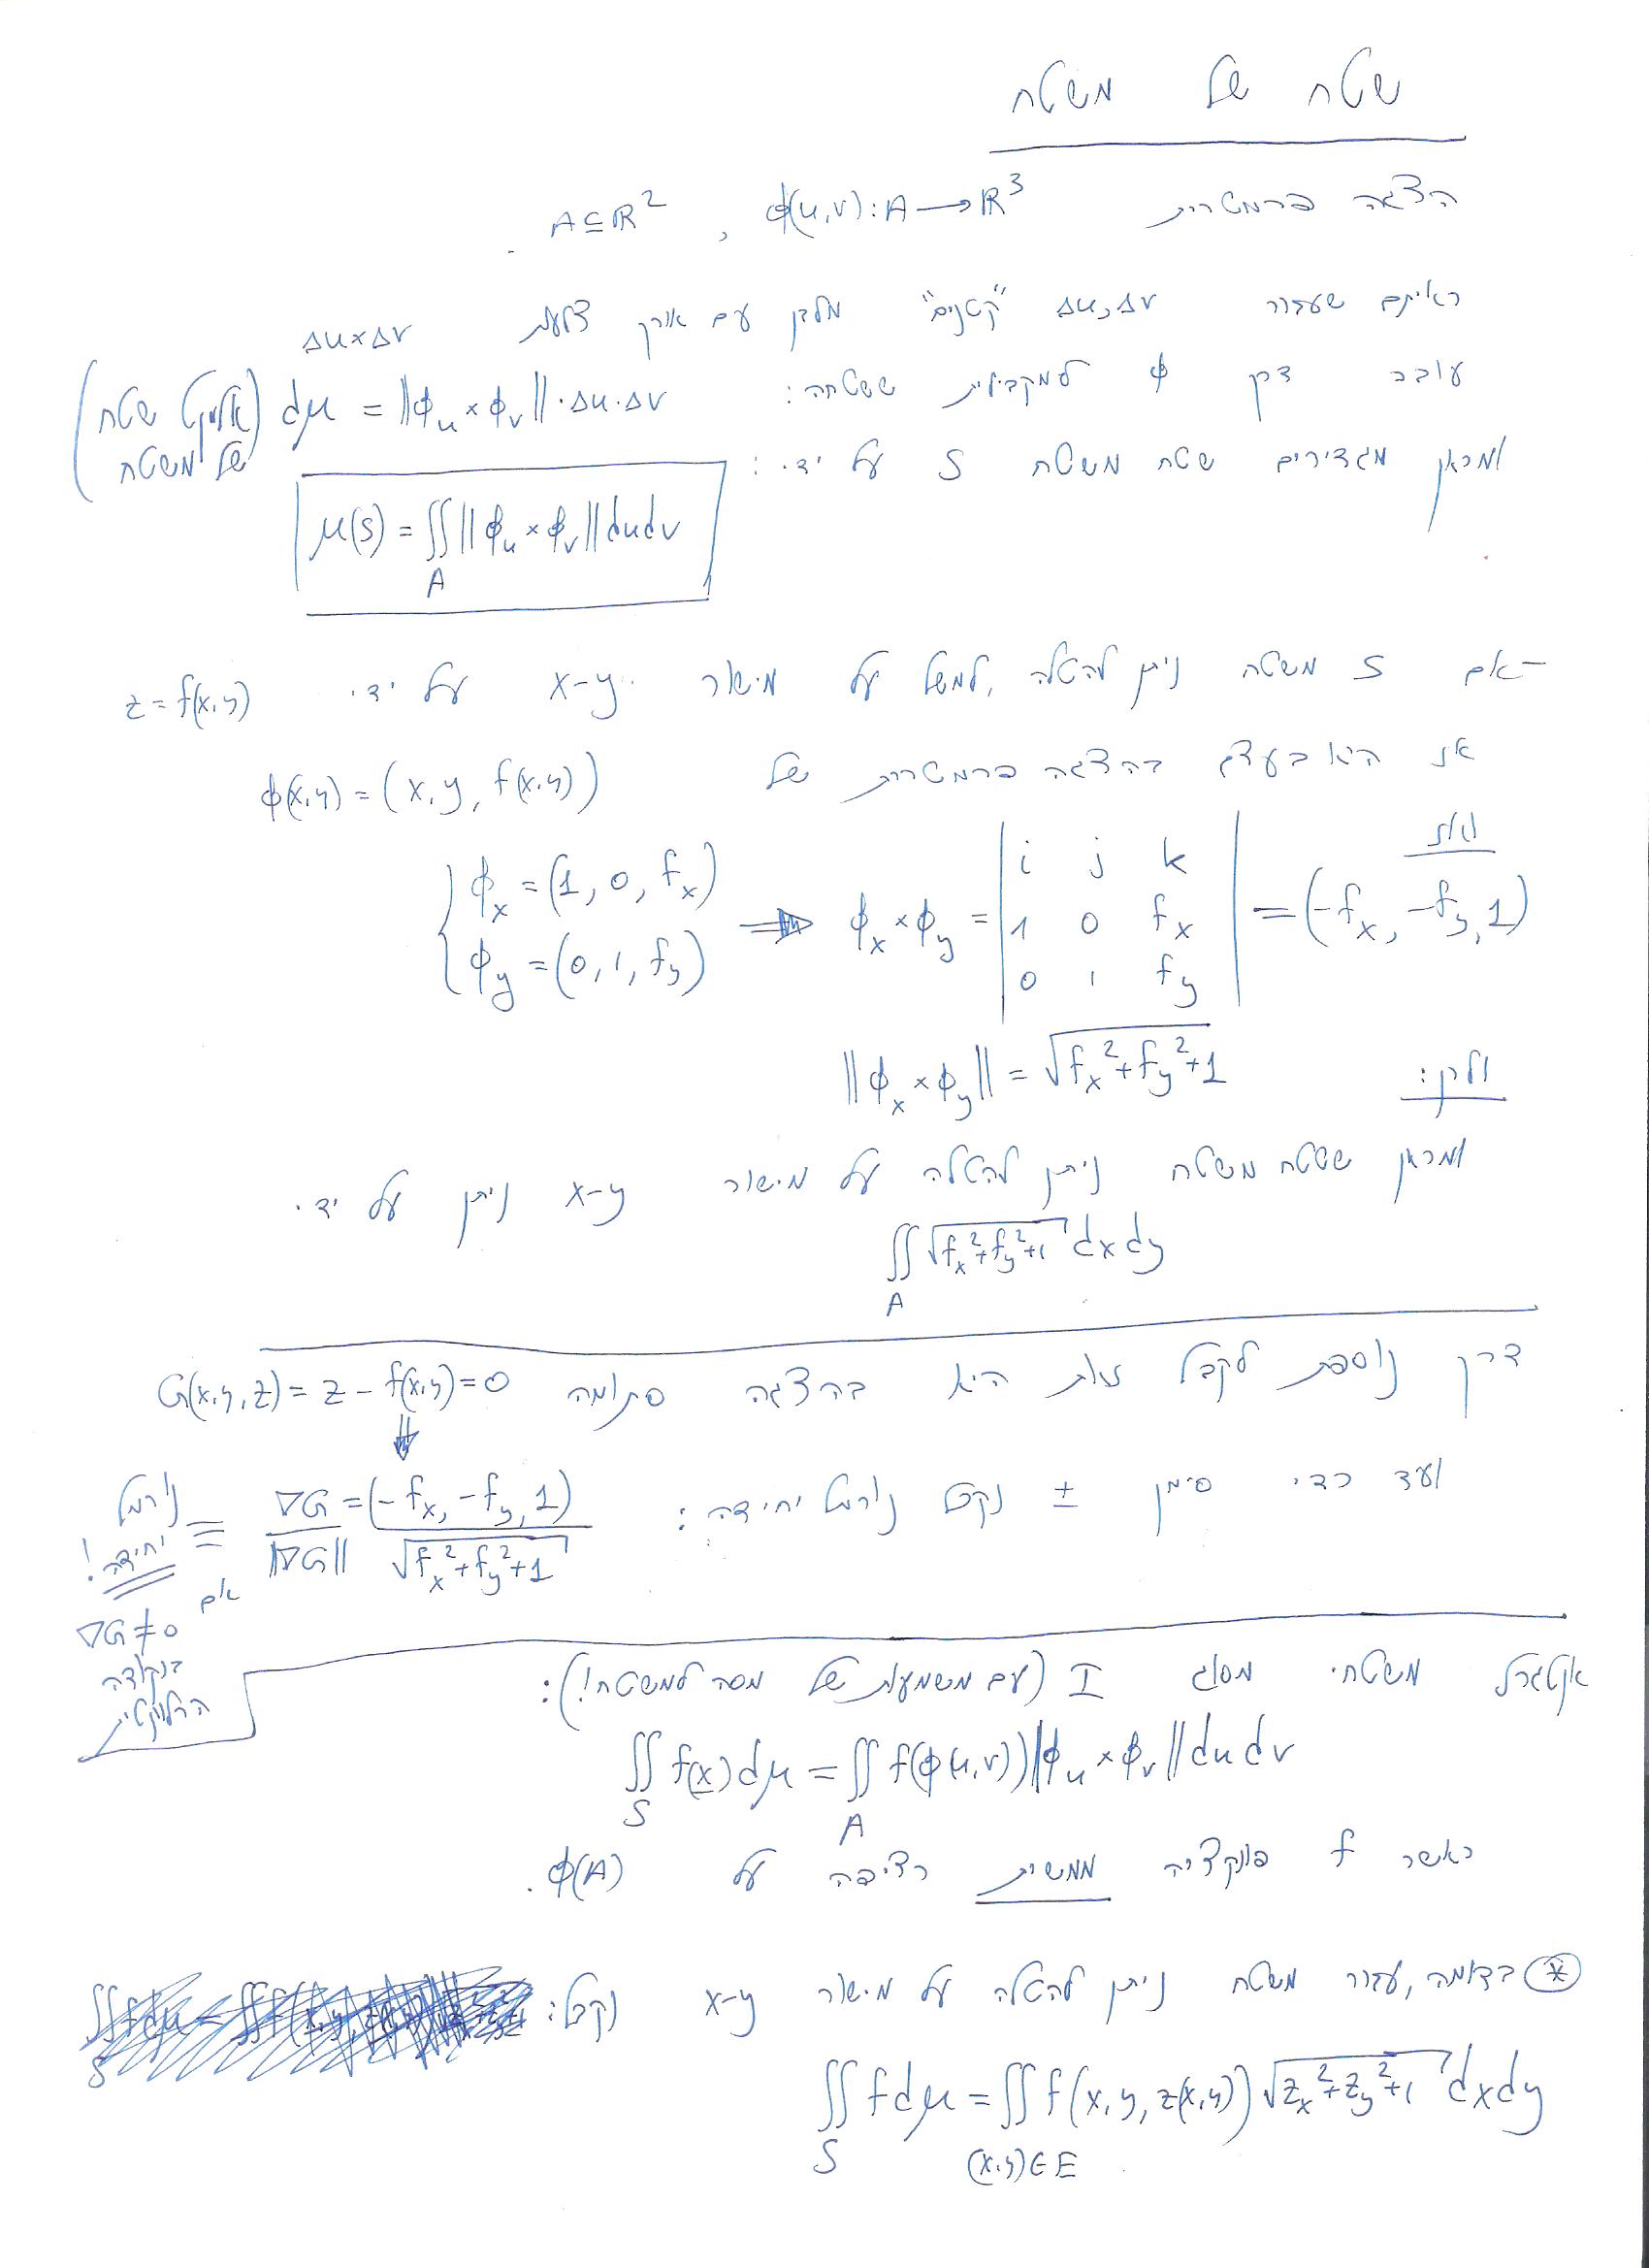 שטח של משטח
הצגה פרמטרית φ(u,v): A → ℝ³ , A ⊆ ℝ² .
ראיתם שעבור Δu, Δv "קטנים" מלבן עם אורך צלעות Δu×Δv
עובר דרך φ למקבילית ששטחה: dμ = ||φ_u × φ_v||·Δu·Δv (אלמנט שטח
של משטח)
ומכאן מגדירים שטח משטח S על ידי:
μ(S) = ∬_A ||φ_u × φ_v|| du dv
- אם S משטח ניתן להטלה, למשל על מישור x-y על ידי z = f(x,y)
אז היא בעצם בהצגה פרמטרית של φ(x,y) = (x, y, f(x,y))
ואת
{ φ_x = (1, 0, f_x)
φ_y = (0, 1, f_y) ⟹ φ_x × φ_y = | i j k
1 0 f_x
0 1 f_y | = (-f_x, -f_y, 1)
ולכן: ||φ_x × φ_y|| = √(f_x² + f_y² + 1)
ומכאן ששטח משטח ניתן להטלה על מישור x-y ניתן על ידי
∬_A √(f_x² + f_y² + 1) dx dy
דרך נוספת לקבל זאת היא בהצגה סתומה G(x,y,z) = z - f(x,y) = 0
⇓
ועד כדי סימן ± נקבל נורמל יחידה: ∇G/||∇G|| = (-f_x, -f_y, 1)/√(f_x² + f_y² + 1) ≡ נורמל
יחידה!
אם
∇G ≠ 0
בנקודה
הרלוונטית
אינטגרל משטחי מסוג I (עם משמעות של מסה למשטח!):
∬_S f(x) dμ = ∬_A f(φ(u,v)) ||φ_u × φ_v|| du dv
כאשר f פונקציה ממשית רציפה על φ(A).
⊛ בדומה, עבור משטח ניתן להטלה על מישור x-y נקבל:
∬_S f dμ = ∬_{(x,y)∈E} f(x, y, z(x,y)) √(z_x² + z_y² + 1) dx dy